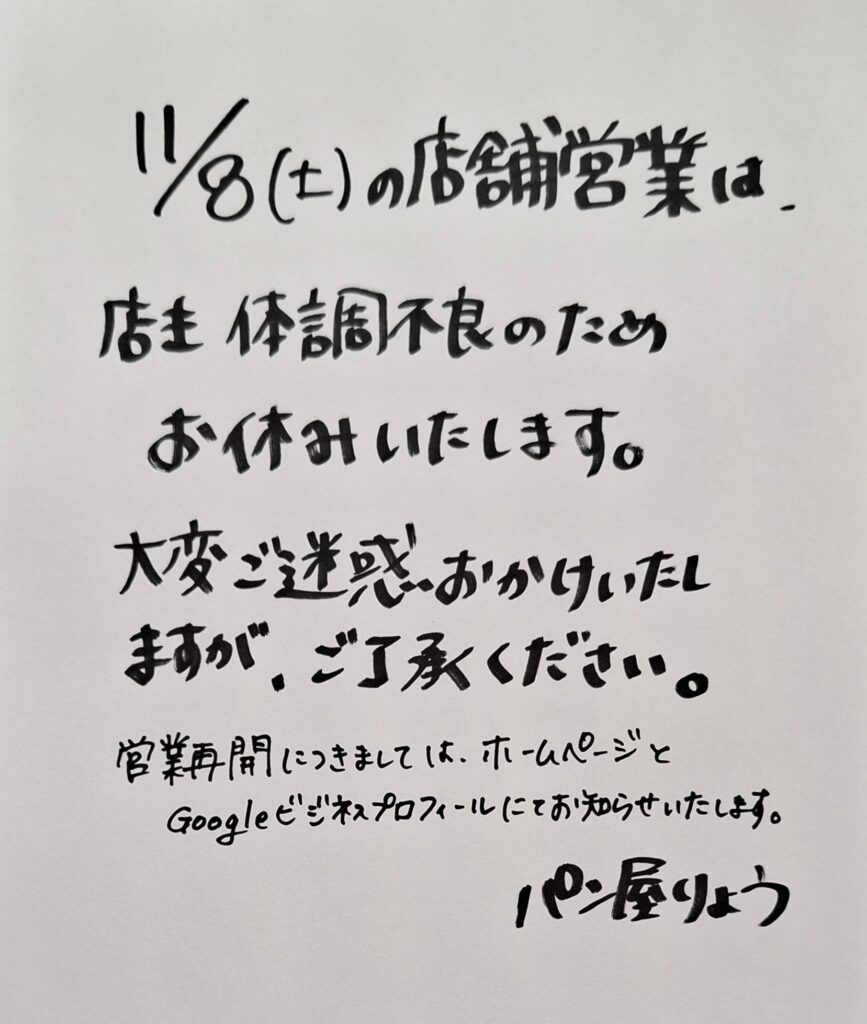 11/8(土)の店舗営業は、
店主 体調不良のため
お休みいたします。
大変ご迷惑おかけいたし
ますが、ご了承ください。
営業再開につきましては、ホームページと
Googleビジネスプロフィールにてお知らせいたします。
パン屋りょう